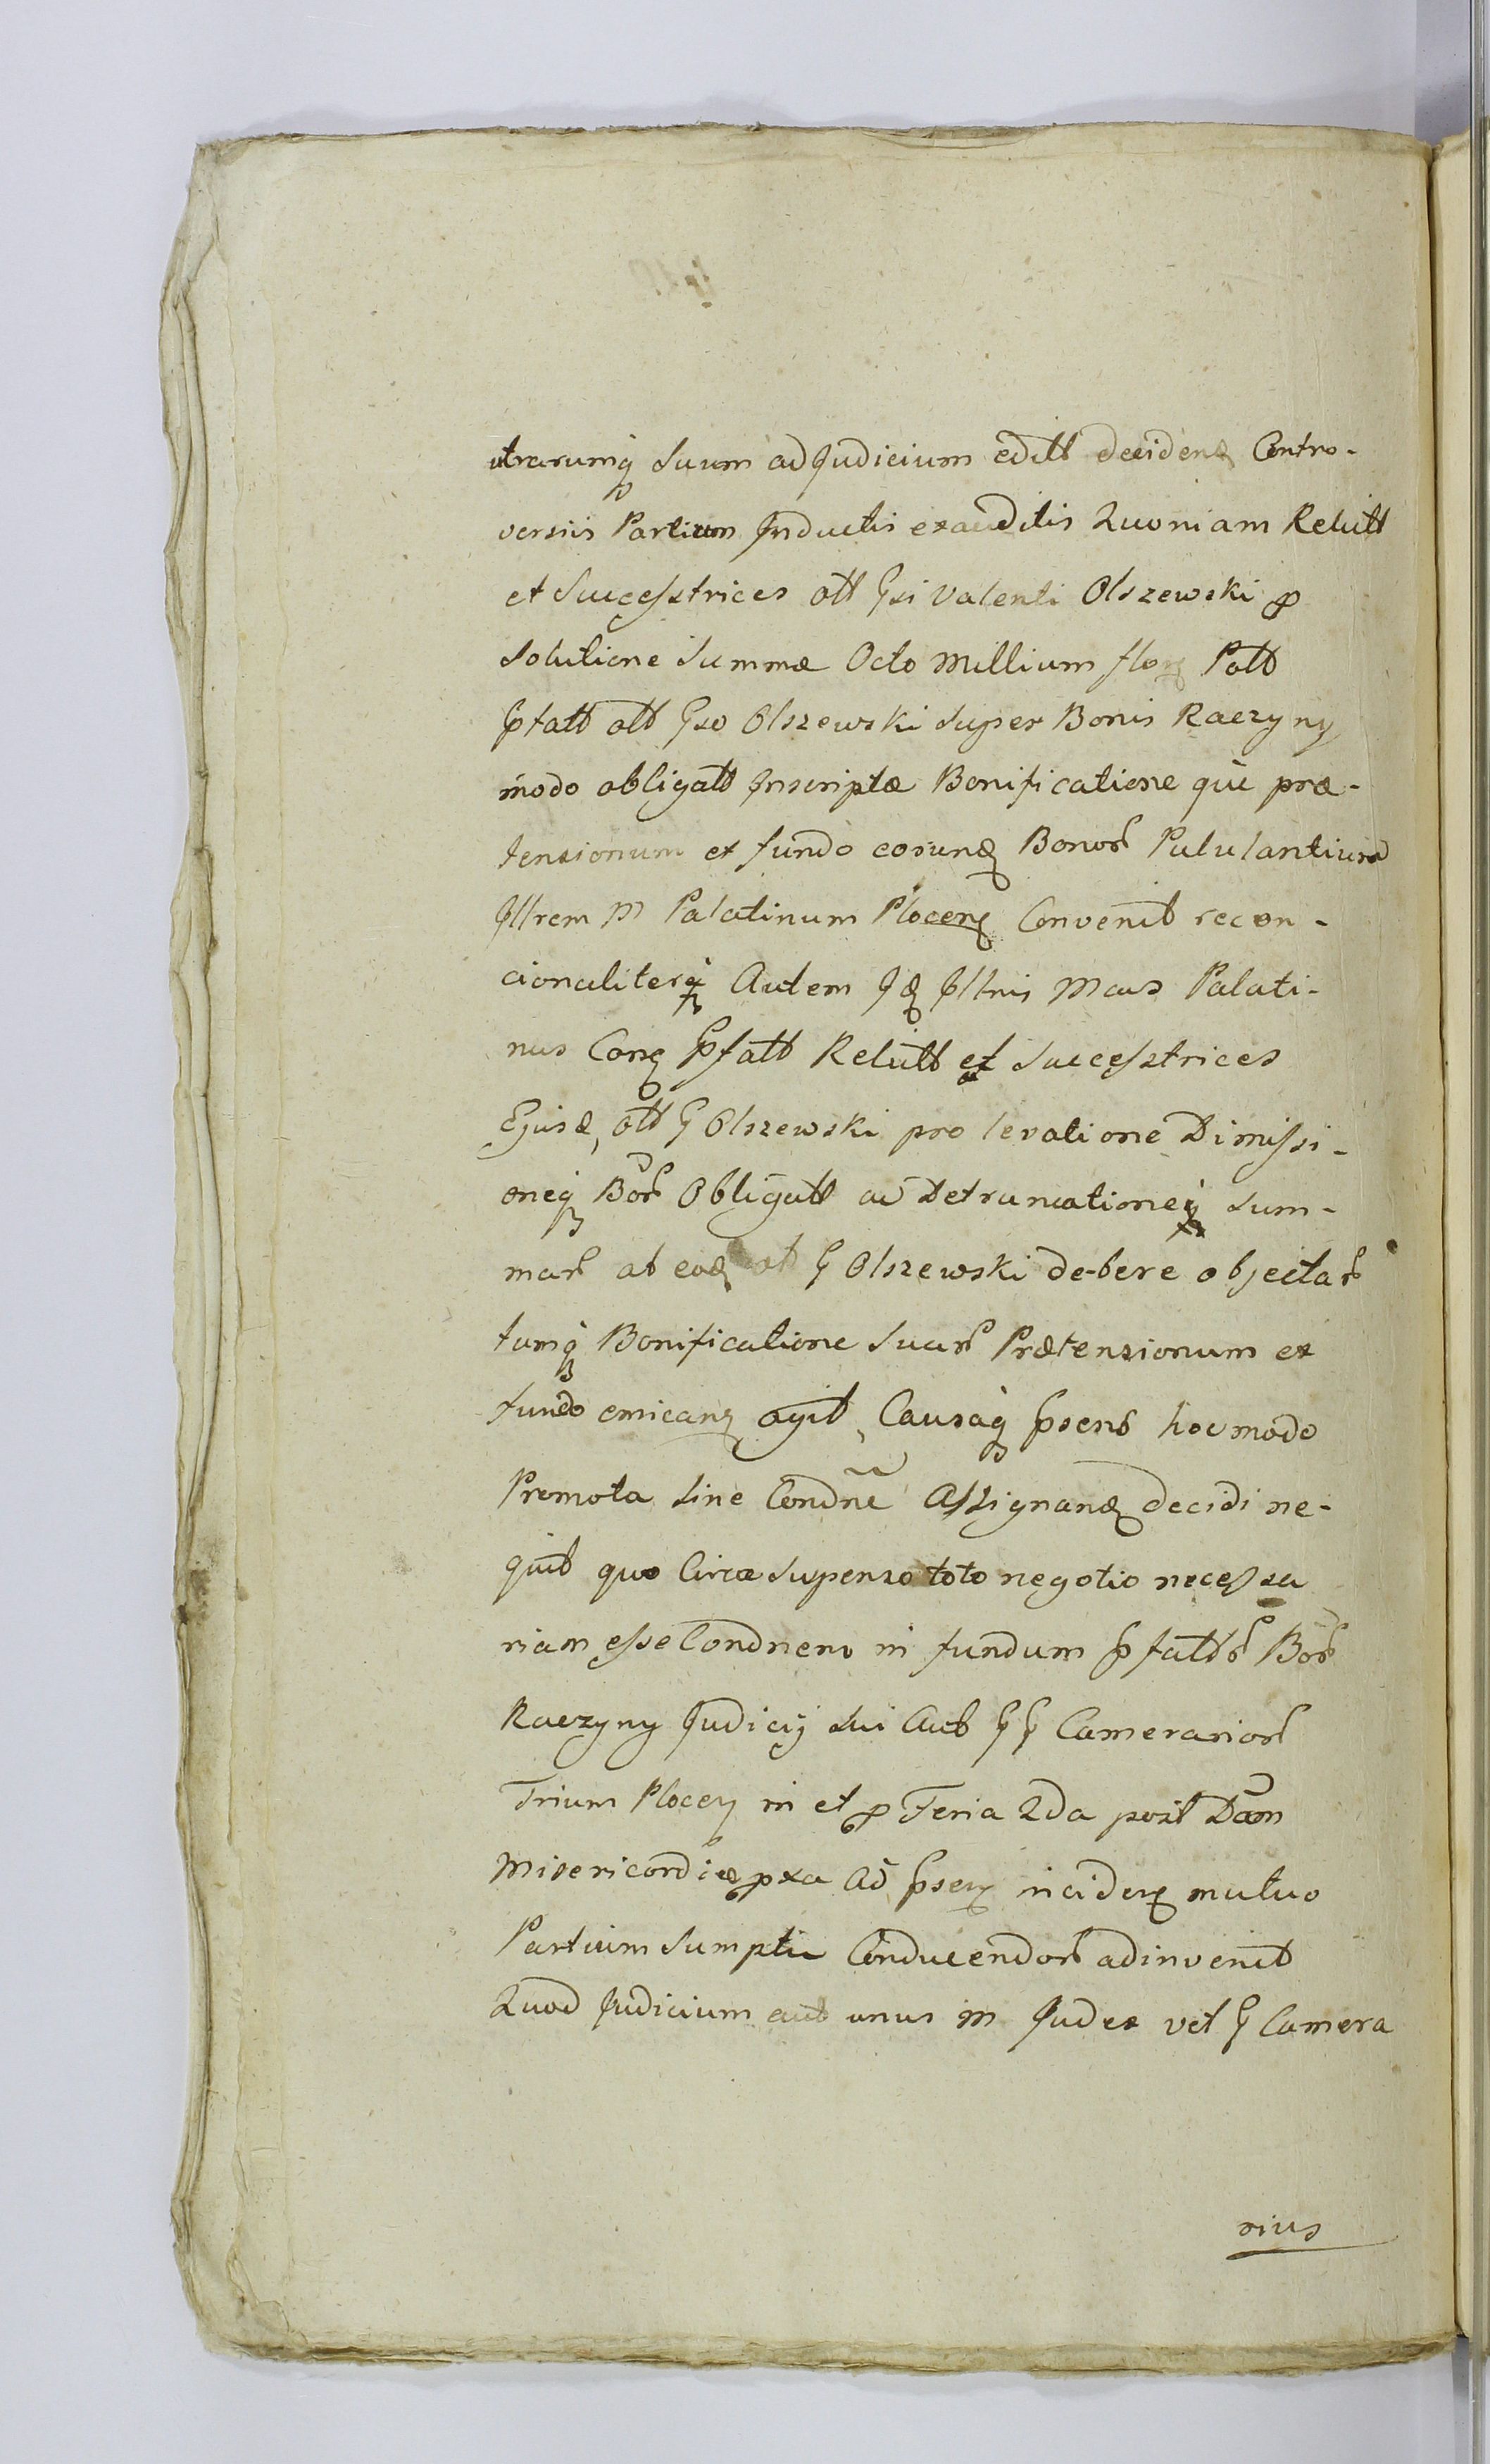 utrarumq suum ad Judicium editt decidend Contro-
versiis Partium Inductis exauditis Quoniam Relutt
et Successtrices ott Gsi Valenti Olszewski p
Solutione Summæ Octo Millium flor Poltt
pfatt ott Gso Olszewski super Bonis Raczyny
modo obligatt Inscriptæ Bonificatione que præ-
tensionum ex fundo eorund Bonor Pululantium
Illrem M Palatinum Plocen Convenit recon-
cionaliterq Autem Id Illris Mcus Palati-
nus Con pfatt Relutt et Successtrices
Ejusd, ott G Olszewski pro levatione Dimissi-
oneq Bor Obligatt ac Detruncationeq Sum-
mar ab eod ott G Olszewski debere objectar
tumq Bonificatione Suar Prætensionum ex
fundo emican agit, Causaq psens hocmodo
Promota Sine Condne Assignand decidi ne-
quit quo Circa Supenso toto negotio necessa
riam esse Condnem in fundum pfattr Bor
Raczyny Judicij Sui Aut GG Camerarior
Trium Plocen in et p Feria 2da post Dam
Misericordiæ pxa Ad psen inciden mutuo
Partium Sumptu Conducendor adinvenit
Quod Judicium aut unus M Judex vel G Camera
rius